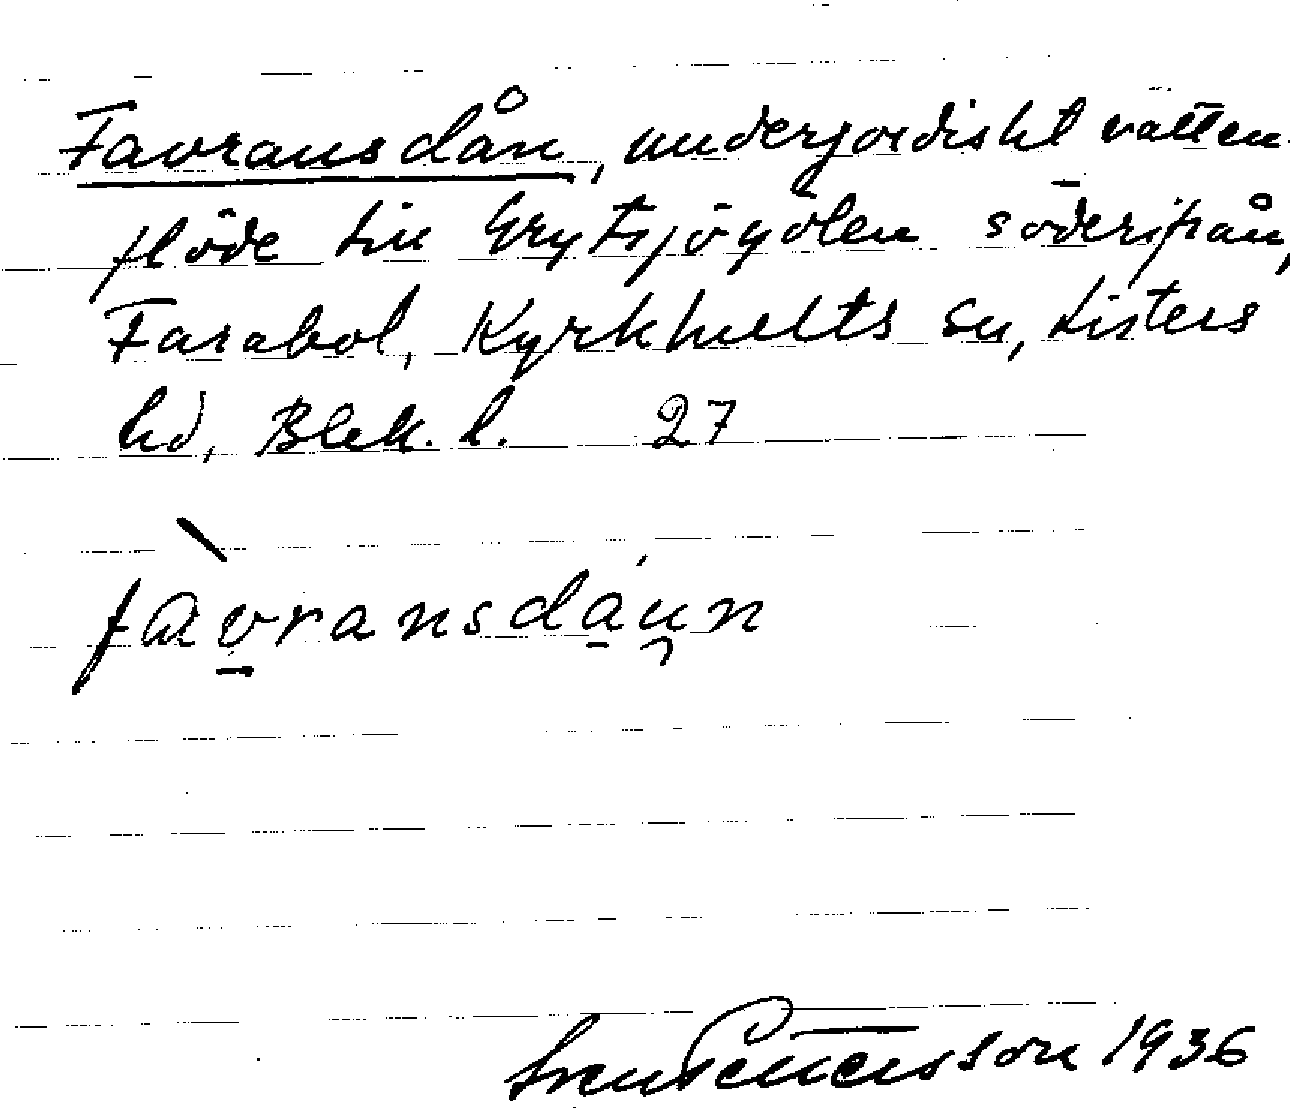 Favransdån, underjordiskt vatten-
flöde till Grytsjögölen söderifrån,
Farabol, Kyrkhults sn, Listers
hd, Blek. l. 27
fàvransdáun
Sven Pettersson 1936